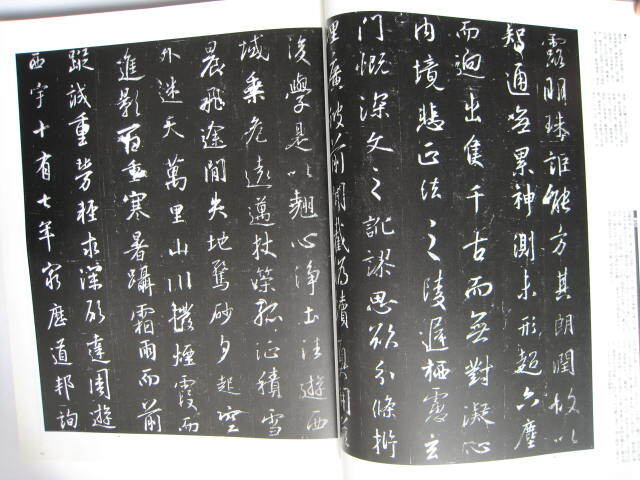 露明珠詎能方其朗潤故以
智通無累神測未形超六塵
而迥出隻千古而無對凝心
內境悲正法之陵遲栖慮玄
門慨深文之訛謬思欲分條析
理廣彼前聞截偽續真開茲
後學是以翹心淨土法遊西
域乘危遠邁杖策孤征積雪
晨飛途間失地驚砂夕起空
外迷天萬里山川撥煙霞而
進影百重寒暑躡霜雨而前
蹤誠重勞輕求深願達周遊
西宇十有七年窮歷道邦詢